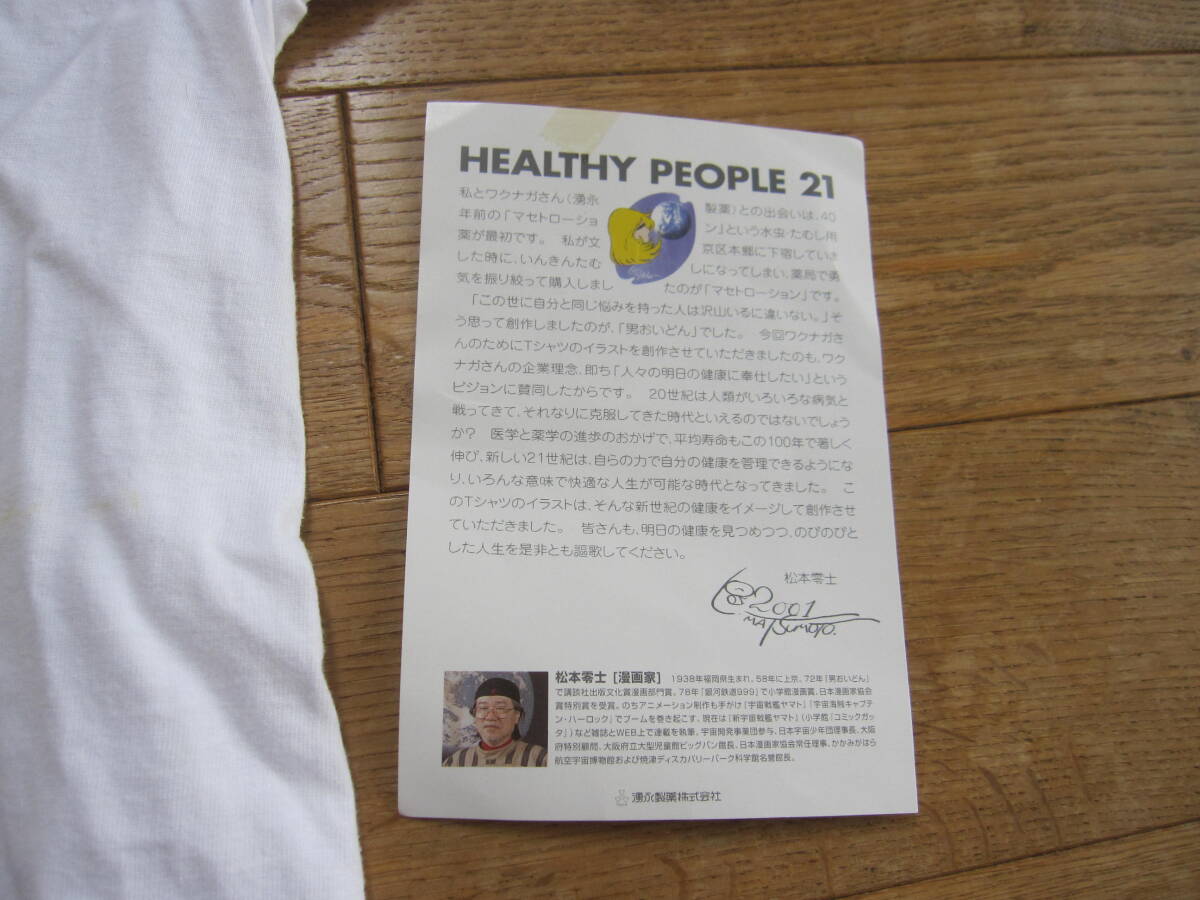 HEALTHY PEOPLE 21
私とワクナガさん（湧永製薬）との出会いは、40
年前の「マセトローション」という水虫・たむし用
薬が最初です。 私が文京区本郷に下宿していま
した時に、いんきんたむしになってしまい、薬局で勇
気を振り絞って購入しましたのが「マセトローション」です。
「この世に自分と同じ悩みを持った人は沢山いるに違いない。」そ
う思って創作しましたのが、「男おいどん」でした。 今回ワクナガさ
んのためにTシャツのイラストを創作させていただきましたのも、ワク
ナガさんの企業理念、即ち「人々の明日の健康に奉仕したい」という
ビジョンに賛同したからです。 20世紀は人類がいろいろな病気と
戦ってきて、それなりに克服してきた時代といえるのではないでしょう
か？ 医学と薬学の進歩のおかげで、平均寿命もこの100年で著しく
伸び、新しい21世紀は、自らの力で自分の健康を管理できるようにな
り、いろんな意味で快適な人生が可能な時代となってきました。 こ
のTシャツのイラストは、そんな新世紀の健康をイメージして創作させ
ていただきました。 皆さんも、明日の健康を見つめつつ、のびのびと
した人生を是非とも謳歌してください。
松本零士
2001
MATSUMOTO.
松本零士［漫画家］ 1938年福岡県生まれ。58年に上京、72年「男おいどん」
で講談社出版文化賞漫画部門賞。78年「銀河鉄道999」で小学館漫画賞、日本漫画家協会
賞特別賞を受賞。のちアニメーション制作も手がけ「宇宙戦艦ヤマト」「宇宙海賊キャプテ
ン・ハーロック」でブームを巻き起こす。現在は「新宇宙戦艦ヤマト」（小学館「コミックガッ
タ」）など雑誌とWEB上で連載を執筆。宇宙開発事業団参与、日本宇宙少年団理事長、大阪
府特別顧問、大阪府立大型児童館ビッグバン館長、日本漫画家協会常任理事、かかみがはら
航空宇宙博物館および焼津ディスカバリーパーク科学館名誉館長。
湧永製薬株式会社